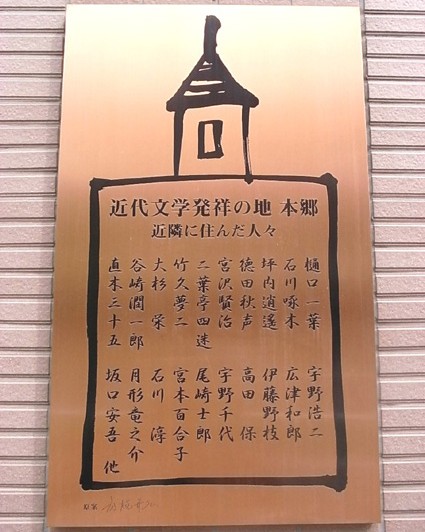 近代文学発祥の地 本郷
近隣に住んだ人々
樋口一葉 宇野浩二
石川啄木 広津和郎
坪内逍遙 伊藤野枝
徳田秋声 高田 保
宮沢賢治 宇野千代
二葉亭四迷 尾崎士郎
竹久夢二 宮本百合子
大杉 栄 石川 淳
谷崎潤一郎 月形竜之介
直木三十五 坂口安吾 他